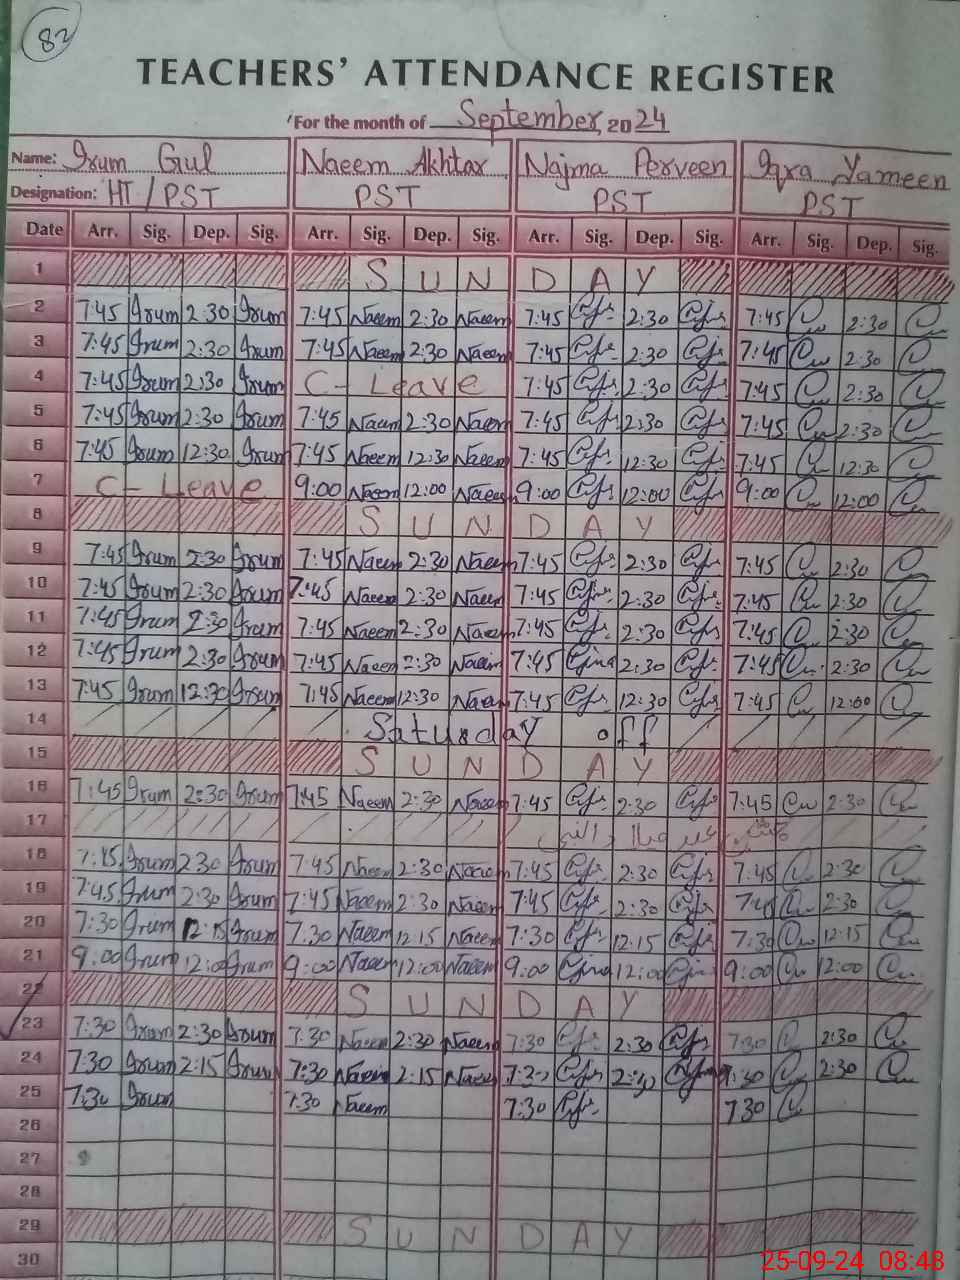 82
TEACHERS' ATTENDANCE REGISTER
For the month of September, 2024
Name: Irum Gul Naeem Akhtar Najma Perveen Iqra Yameen
Designation: HT/PST PST PST PST
Date Arr. Sig. Dep. Sig. Arr. Sig. Dep. Sig. Arr. Sig. Dep. Sig. Arr. Sig. Dep. Sig.
1 SUNDAY
2 7:45 Irum 2:30 Irum 7:45 Naeem 2:30 Naeem 7:45 2:30 7:45 2:30
3 7:45 Irum 2:30 Irum 7:45 Naeem 2:30 Naeem 7:45 2:30 7:45 2:30
4 7:45 Irum 2:30 Irum C-Leave 7:45 2:30 7:45 2:30
5 7:45 Irum 2:30 Irum 7:45 Naeem 2:30 Naeem 7:45 2:30 7:45 2:30
6 7:45 Irum 12:30 Irum 7:45 Naeem 12:30 Naeem 7:45 12:30 7:45 12:30
7 C-Leave 9:00 Naeem 12:00 Naeem 9:00 12:00 9:00 12:00
8 SUNDAY
9 7:45 Irum 2:30 Irum 7:45 Naeem 2:30 Naeem 7:45 2:30 7:45 2:30
10 7:45 Irum 2:30 Irum 7:45 Naeem 2:30 Naeem 7:45 2:30 7:45 2:30
11 7:45 Irum 2:30 Irum 7:45 Naeem 2:30 Naeem 7:45 2:30 7:45 2:30
12 7:45 Irum 2:30 Irum 7:45 Naeem 2:30 Naeem 7:45 2:30 7:45 2:30
13 7:45 Irum 12:30 Irum 7:45 Naeem 12:30 Naeem 7:45 12:30 7:45 12:00
14 Saturday off
15 SUNDAY
16 7:45 Irum 2:30 Irum 7:45 Naeem 2:30 Naeem 7:45 2:30 7:45 2:30
17 عید میلاد النبی
18 7:45 Irum 2:30 Irum 7:45 Naeem 2:30 Naeem 7:45 2:30 7:45 2:30
19 7:45 Irum 2:30 Irum 7:45 Naeem 2:30 Naeem 7:45 2:30 2:30
20 7:30 Irum 12:15 Irum 7:30 Naeem 12:15 Naeem 7:30 12:15 7:30 12:15
21 9:00 Irum 12:00 Irum 9:00 Naeem 12:00 Naeem 9:00 12:00 9:00 12:00
22 SUNDAY
23 7:30 Irum 2:30 Irum 7:30 Naeem 2:30 Naeem 7:30 2:30 7:30 2:30
24 7:30 Irum 2:15 Irum 7:30 Naeem 2:15 Naeem 7:30 2:30 7:30 2:30
25 7:30 Irum 7:30 Naeem 7:30 7:30
26
27
28
29 SUNDAY
30
25-09-24 08:48